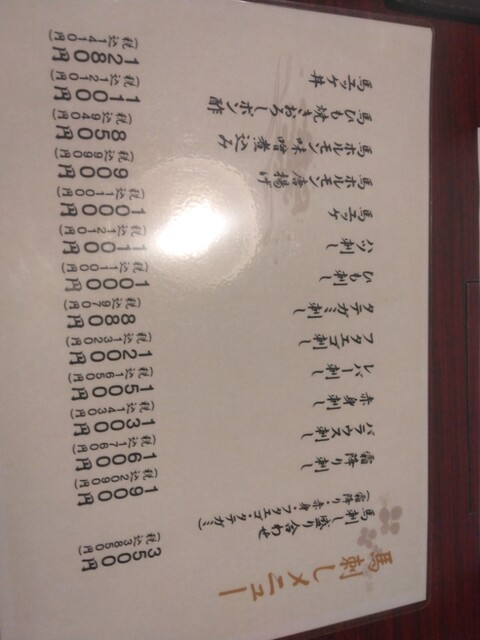 馬刺しメニュー
馬刺し盛り合わせ
(霜降・赤身・フタエゴ・タテガミ)
3500円
(税込3850円)
霜降り刺し
1900円
(税込2090円)
バラウス刺し
1600円
(税込1760円)
赤身刺し
1300円
(税込1430円)
レバー刺し
1500円
(税込1650円)
フタエゴ刺し
1200円
(税込1320円)
タテガミ刺し
880円
(税込970円)
ひも刺し
1000円
(税込1100円)
ハツ刺し
1100円
(税込1210円)
馬ユッケ
1000円
(税込1100円)
馬ホルモン唐揚げ
900円
(税込990円)
馬ホルモン味噌煮込み
850円
(税込940円)
馬ひも焼きおろしポン酢
1100円
(税込1210円)
馬ユッケ丼
1280円
(税込1410円)